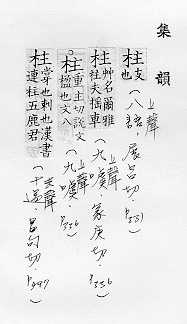 集韻
柱 支也 (八語·上聲 展呂切·P331)
柱 艸名爾雅柱夫搖車 (九噳·上聲 冢庾切·P336)
柱 重主切說文楹也文八 (九噳·上聲 P336)
柱 掌也刺也漢書連柱五鹿君 (十遇·去聲 句切·)